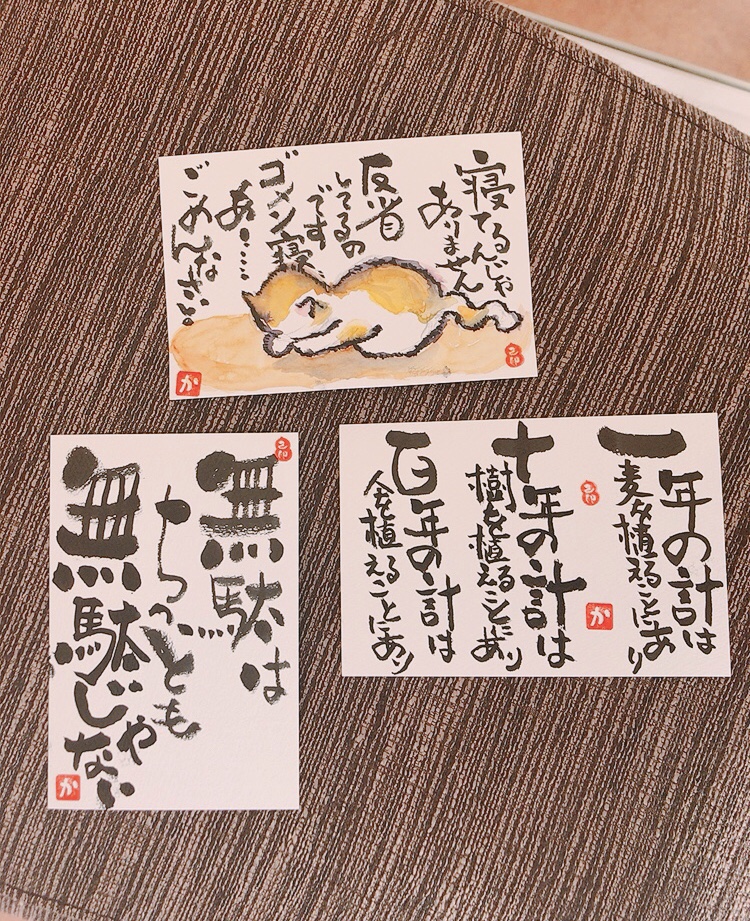 寝てるんじゃ
ありません
反省
してるの
です
ゴメン寝
あ！……
ごめんなさい。
か
無駄は
ちっとも
無駄じゃない
か
一年の計は
麦を植えることにあり
十年の計は
樹を植えることにあり
百年の計は
人を植えることにあり
か